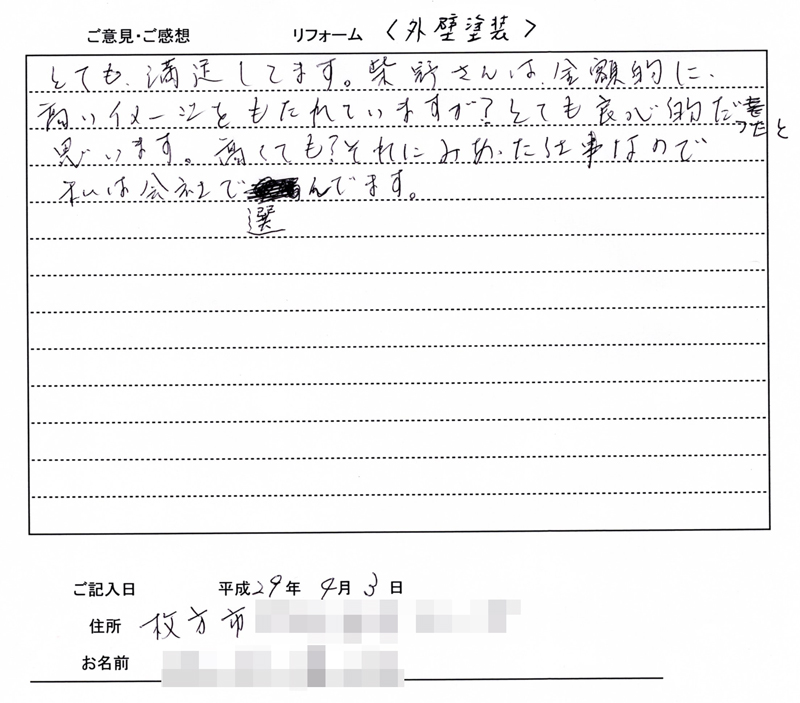 ご意見・ご感想 リフォーム 〈外壁塗装〉
とても、満足してます。柴野さんは、金額的に、
高いイメージをもたれていますが?とても良心的だったと
思います。高くても?それにみあった仕事なので
私は会社で選んでます。
ご記入日 平成29年4月3日
住所 枚方市
お名前